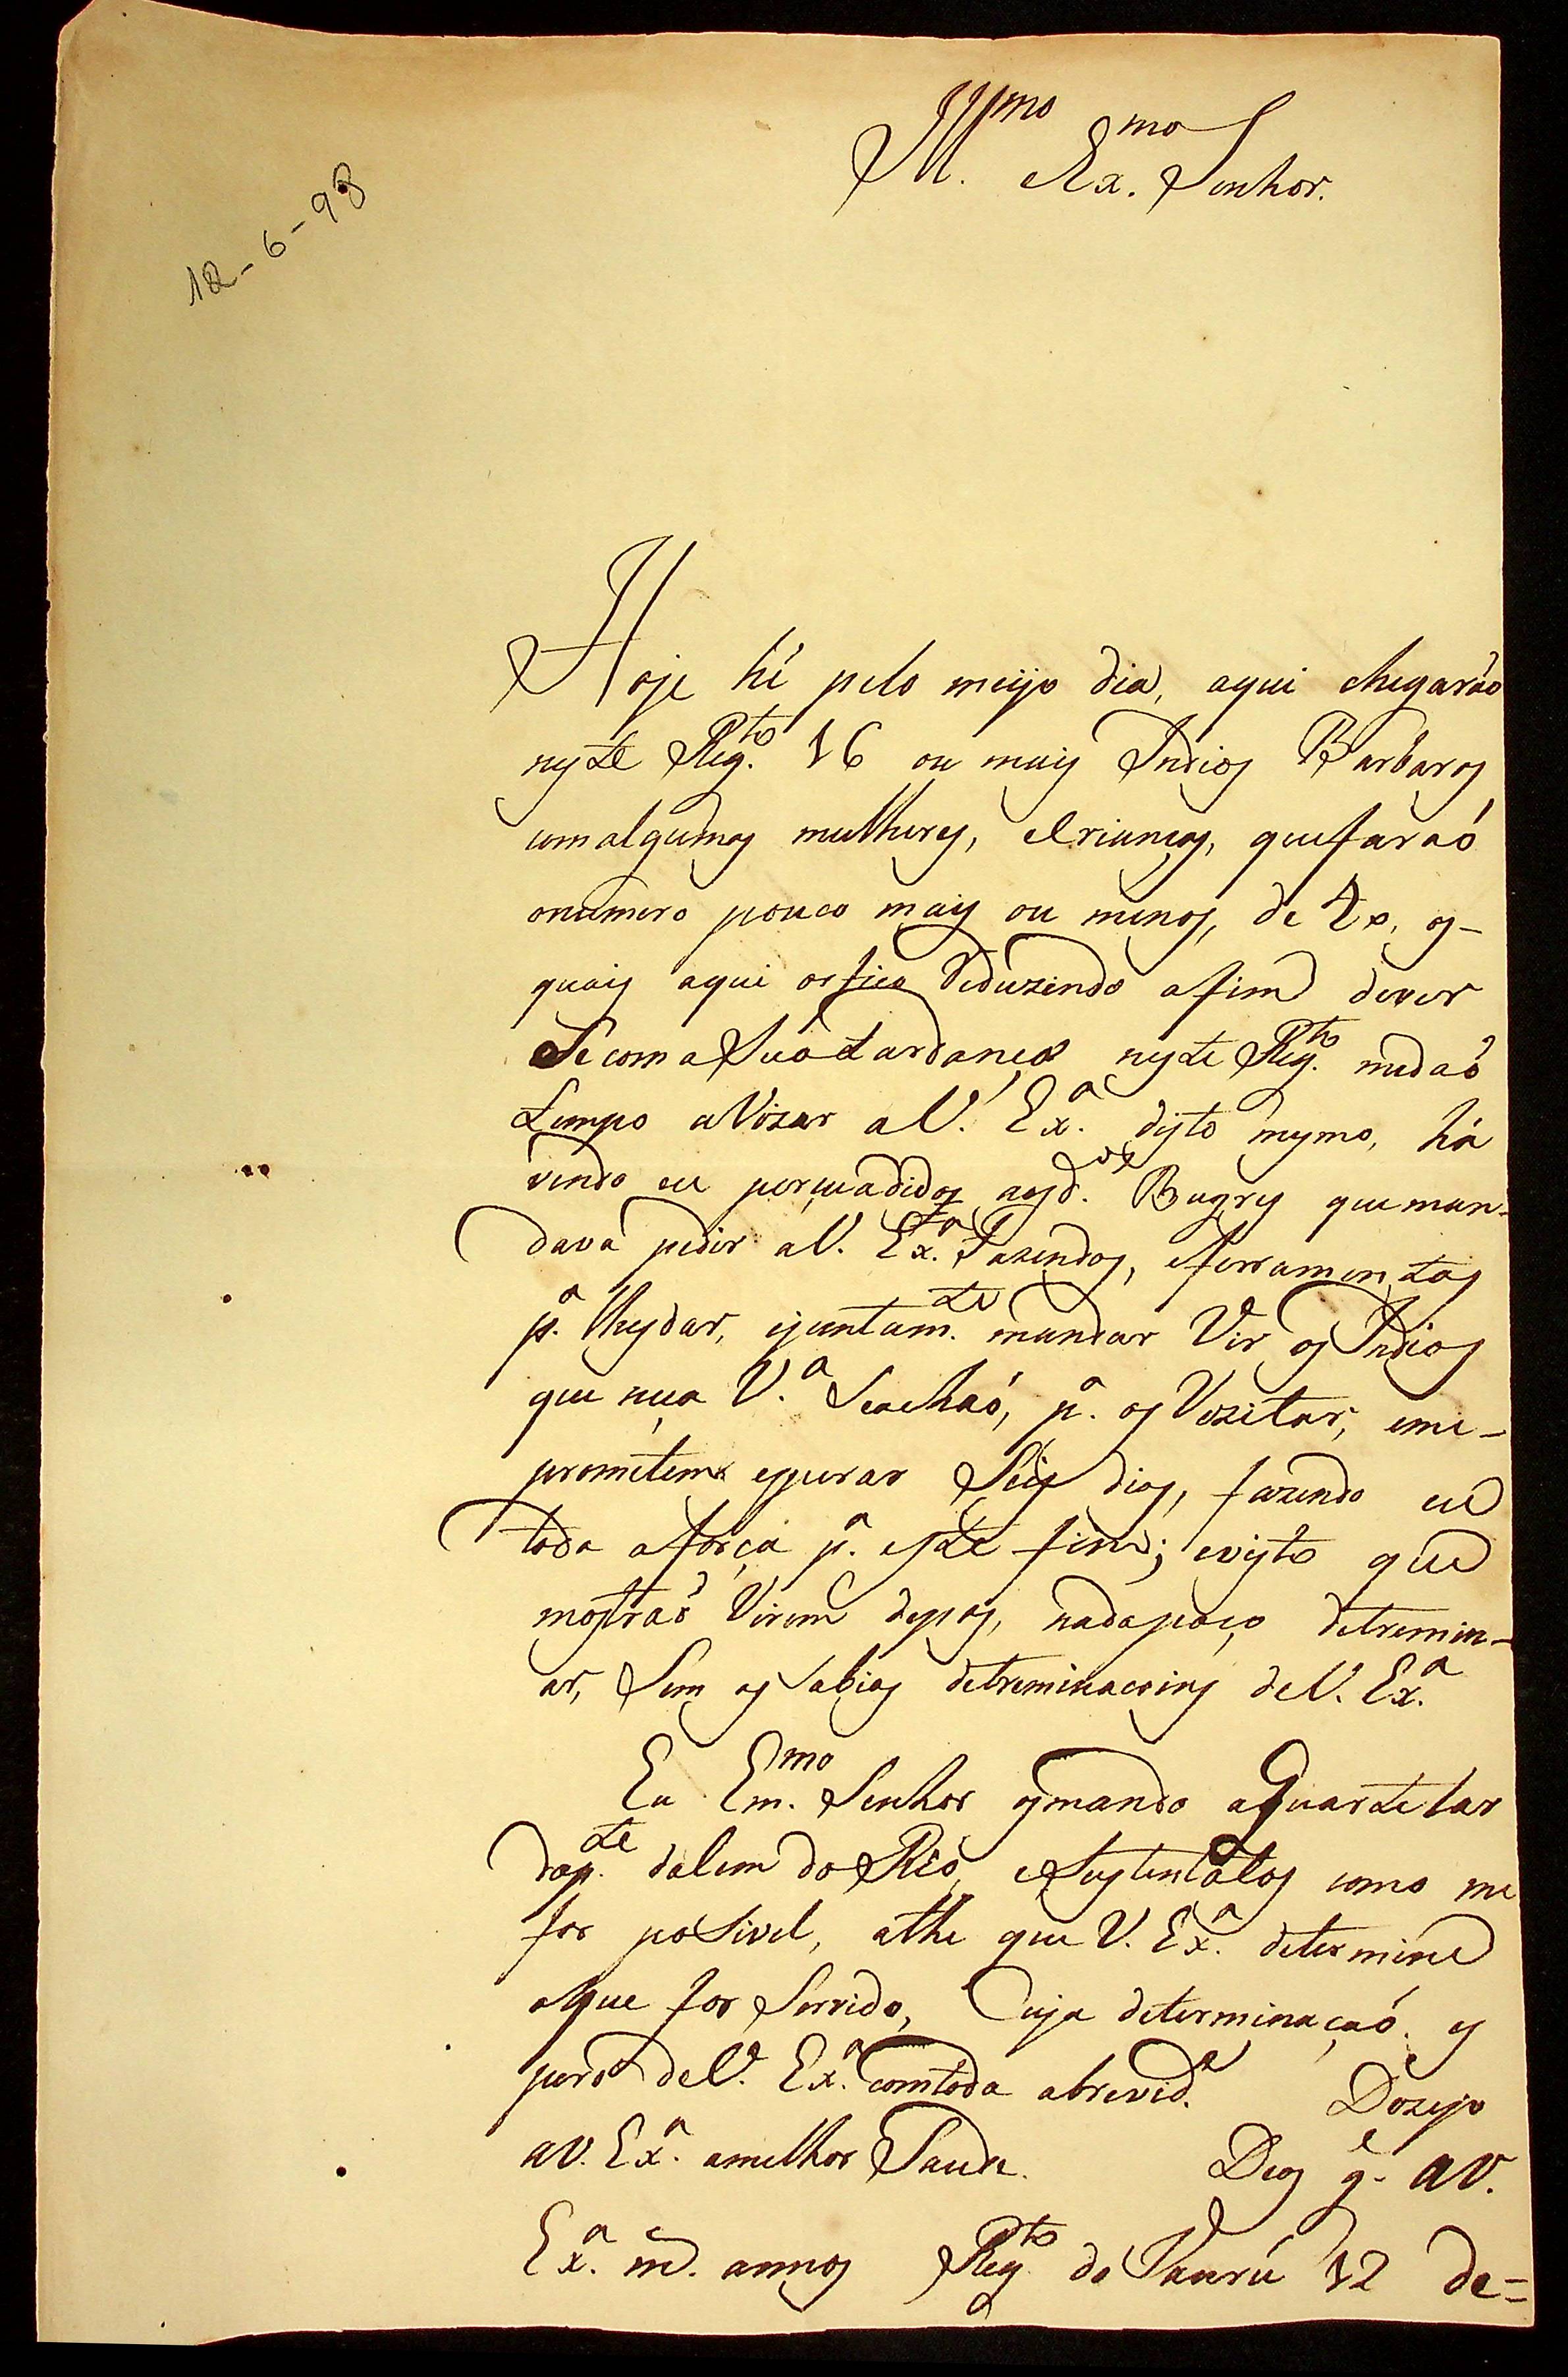 12-6-98
Ill.mo Ex.mo Senhor.
Hoje hé pelo meijo dia, aqui chegaráo
neste Reg.to 16 ou mais Indios Barbaros
comalgumas mulheres, eCriancas, quefaraó
onumero pouco mais ou menos, de os
quais aqui osfico deduzindo afim dever
Secomasua tardanca neste Reg.to medaó
tempo aVizar aV. Ex.a disto mesmo, há
vendo eu persuadidos aosd.os Bugres queman-
dava pedir aV. Ex.a Fazendas, eferramentas
p.a lhesdar, ejuntam.te mandar Vir os Indios
que nesa V.a Seachaó, p.a os Vezitar, eme-
prometem esperar Seis dias, fazendo eu
toda aforça p.a este fim; evisto que
mostraó Virem depas, nadapoço detremin-
ar, Sem as Sabias detreminacoins deV. Ex.a
Eu Em.mo Senhor osmando aQuartelar
dap.te dalem do Rio, eSustentalos como me
for poSivel, athe que V. Ex.a determine
oque for Servido, Cuja determinaçaó es
pero deV. Ex.a comtoda abrevid.e Dozejo
aV. Ex.a amelhor Saude. Deos g.e aV.
Ex.a m.s annos Reg.to do 12 de=